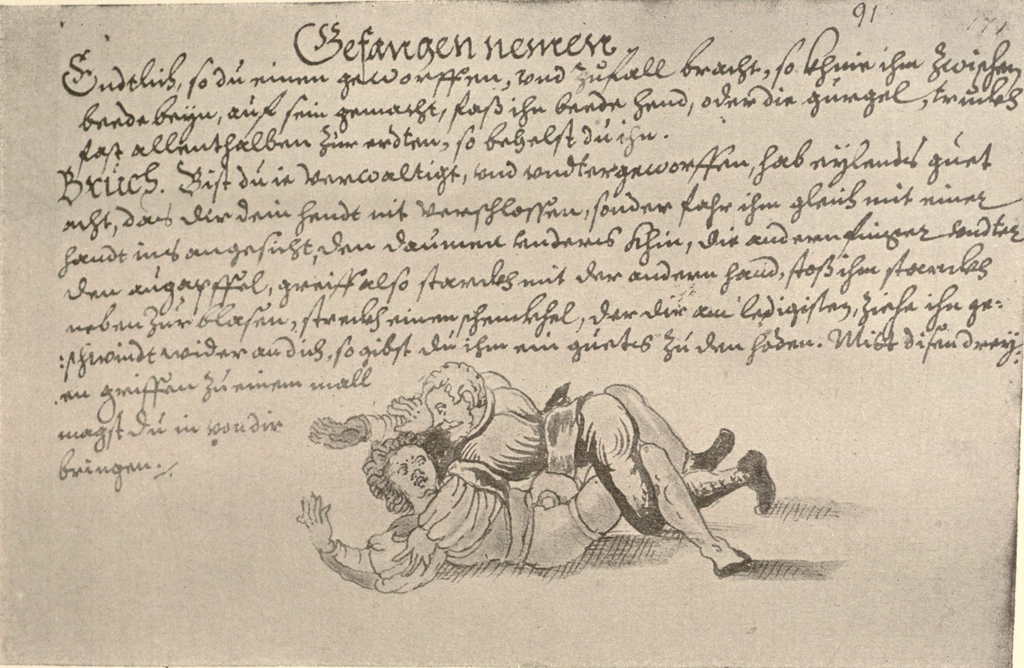 91
171
Gefangen nemen.
Endtlich, so du einen geworffen, vnd zufall bracht, so khnie ihm zwischen
beede beyn, auf sein gemacht, faß ihn beede hend, oder die gurgel, truckh
fast allenthalben zur erdten, so behelst du ihn.
Bruch. Bist du ie verwaltigt, vnd vndtergeworffen, hab eylends guet
acht, das dir dein hendt nit verschlossen, sonder fahr ihm gleich mit einer
handt ins angesicht, den daumen vnders khin, die andern finger vndter
den augapffel, greiff also starckh mit der andern hand, stoß ihm starckh
neben zur blasen, streckh einen schenckhel, der dir am ledigisten, ziehe ihn ge-
:schwindt wider an dich, so gibst du ihm ein guets zu den hoden. Mitt disen drey-
en griffen zu einem mall
magst du in von dir
bringen.